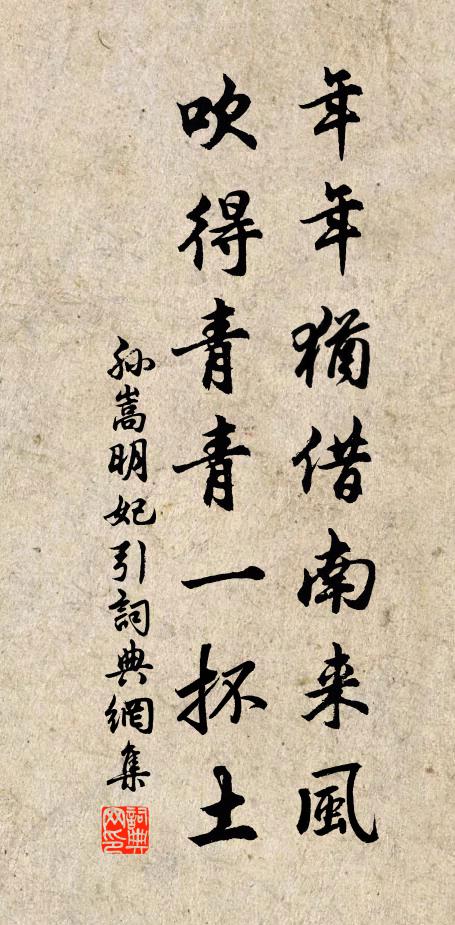 年年猶借南来風
吹得青青一抔土
孫嵩明妃引詞典網集
詞典网印